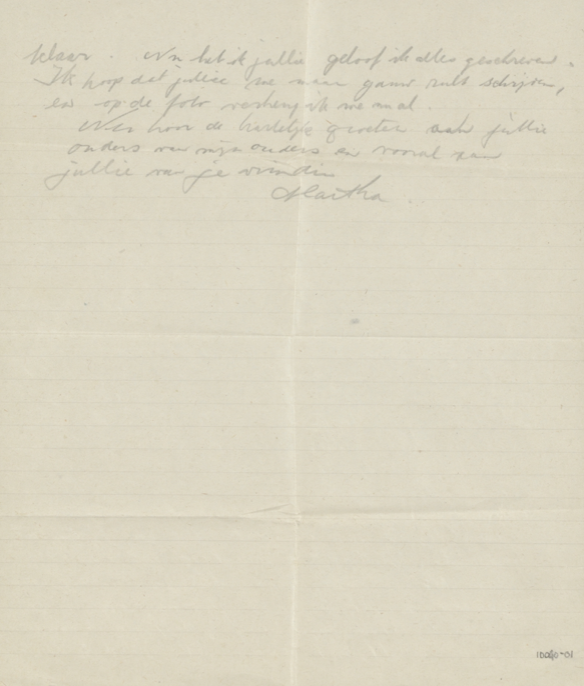 klaar. Nu heb ik jullie geloof ik alles geschreven.
Ik hoop dat jullie me weer gauw zult schrijven,
en op de foto verheug ik me al.
Nu hoor de hartelijke groeten aan jullie
ouders van mijn ouders en vooral aan
jullie van je vriendin
Martha.